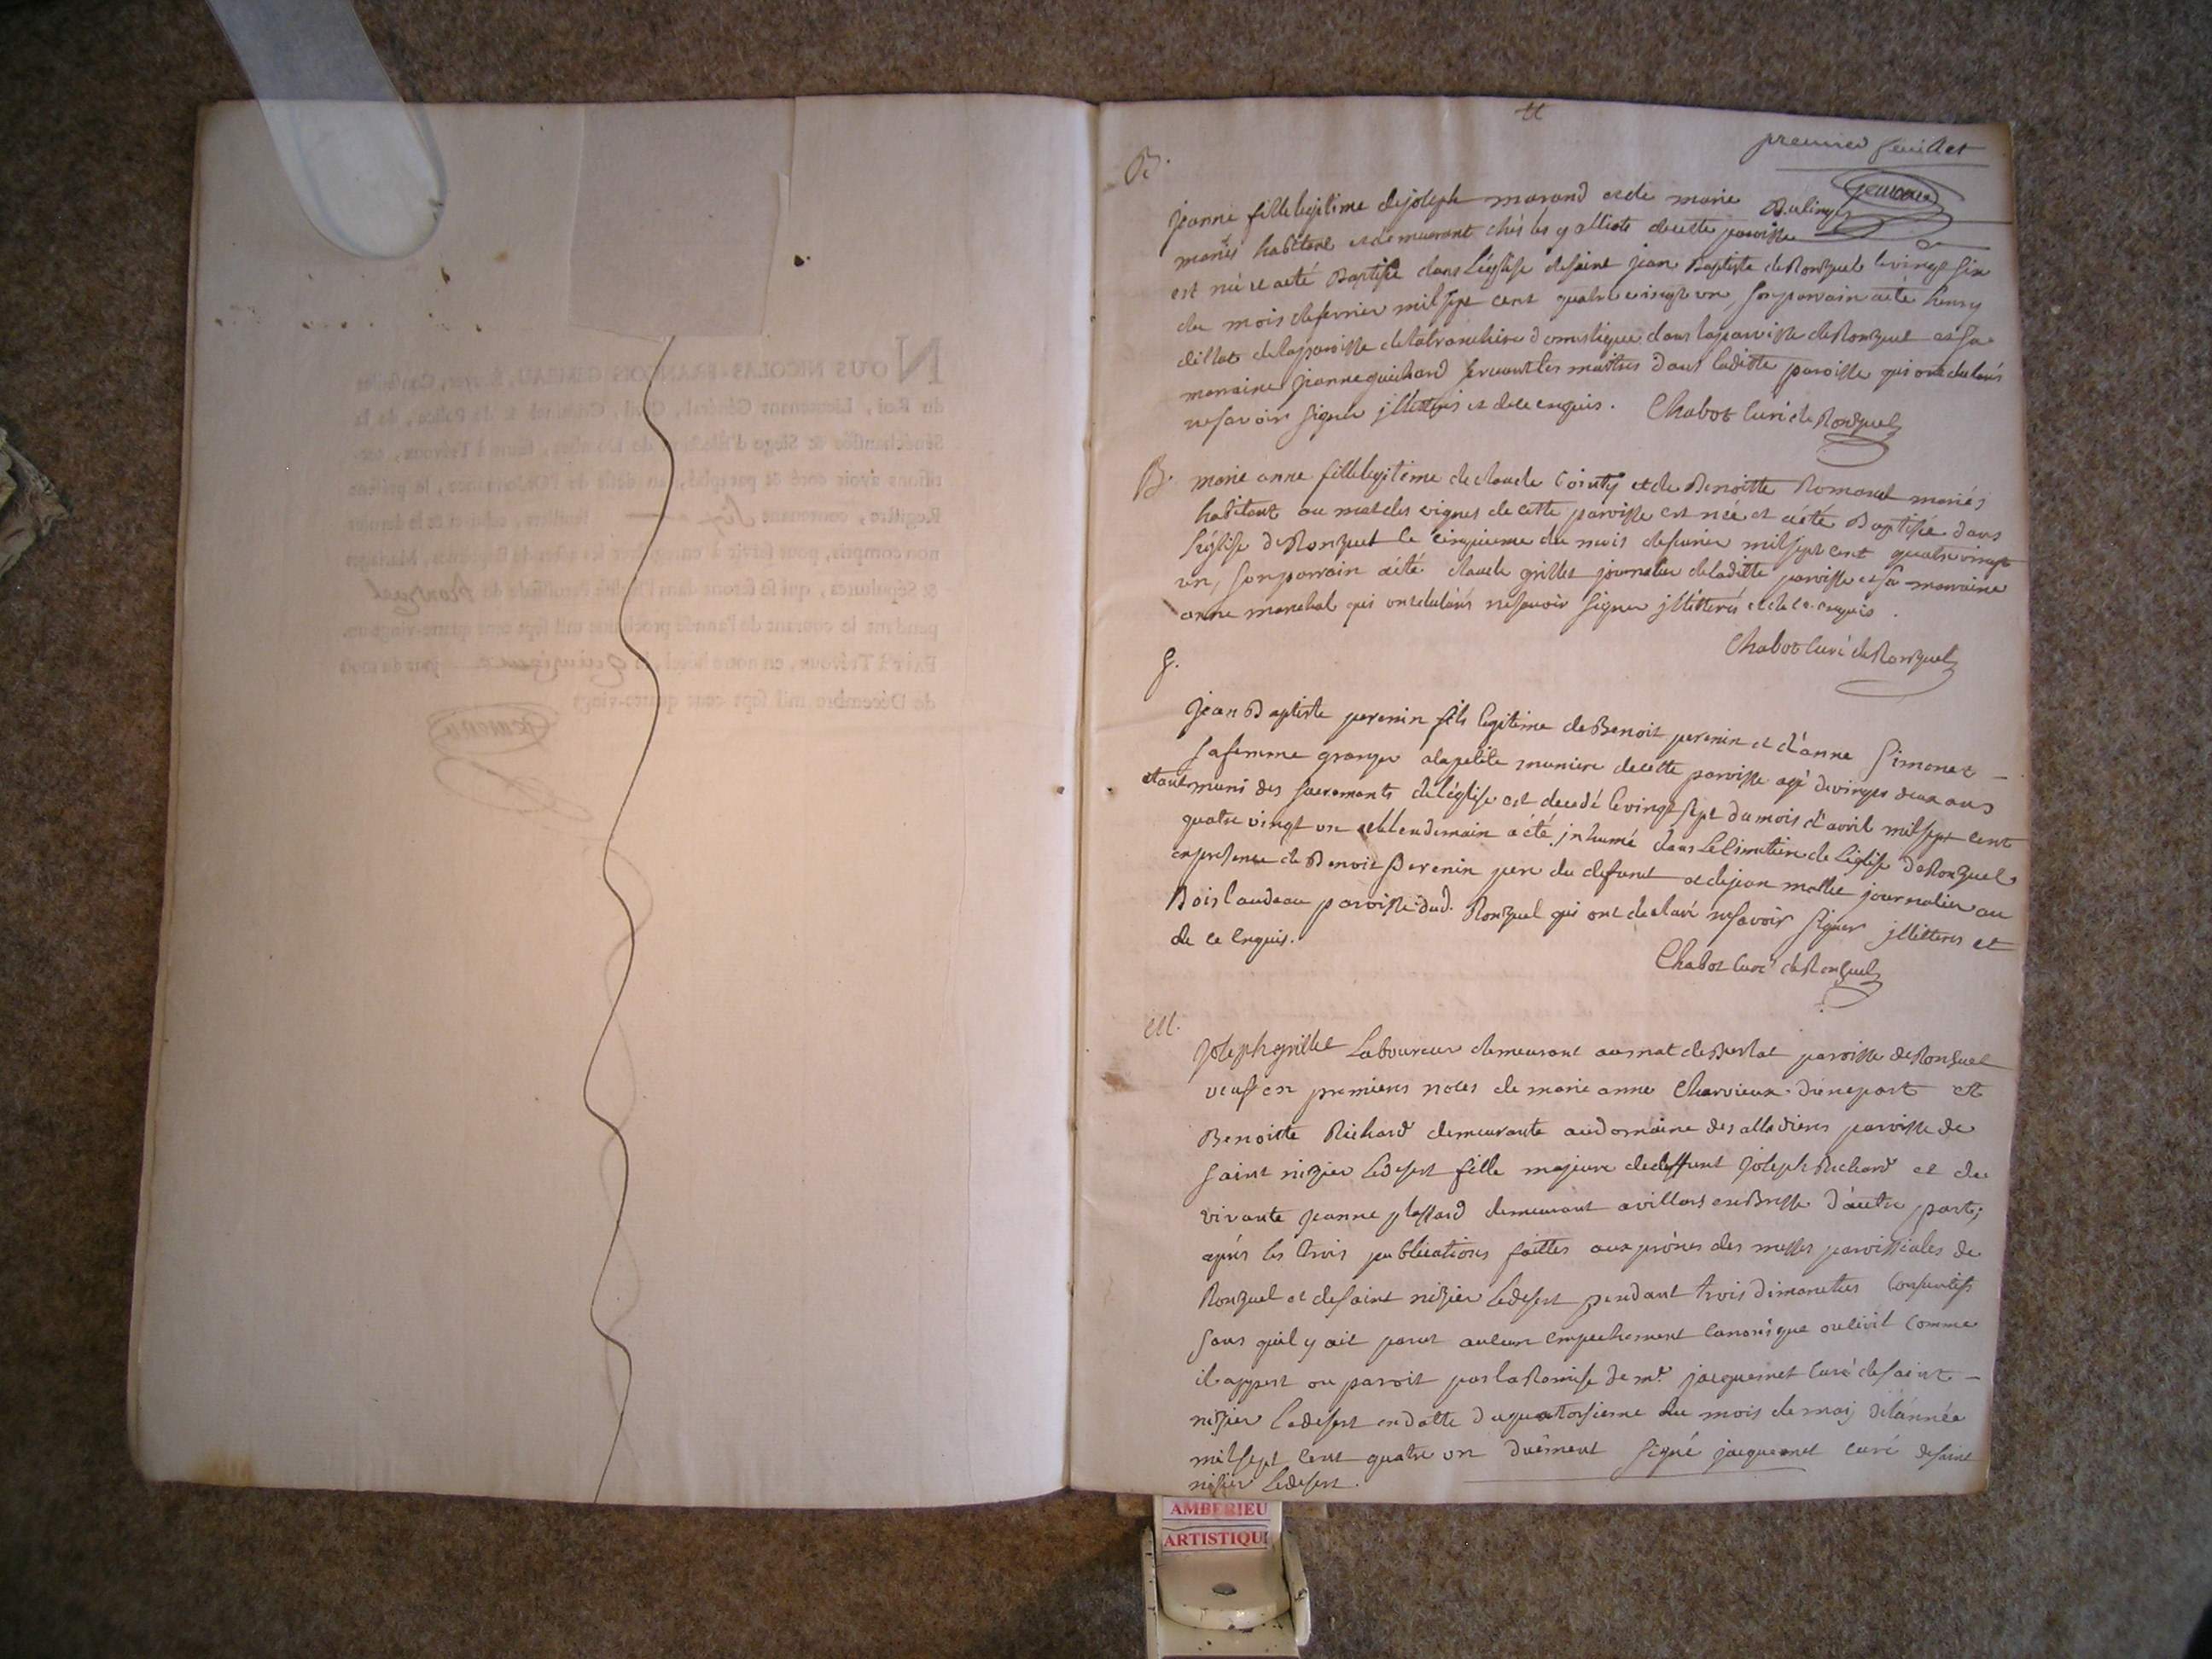 NOUS NICOLAS-FRANÇOIS GEMEAU, Écuyer, Conseiller
du Roi, Lieutenant Général, Civil, Criminel & de Police, de la
Sénéchaussée & Siege de Dombes, séant à Trévoux, cer-
tifions avoir coté & paraphé, au désir de l'Ordonnance, le présent
Registre, contenant Six feuillets, celui-ci & le dernier
non compris, pour servir à enregistrer les Actes de Baptêmes, Mariages
& Sépultures, qui se feront dans l'Eglise Paroissiale de Ronzuel
pendant le courant de l'année prochaine mil sept cent quatre-vingt-un.
FAIT à Trévoux, en notre hôtel, le quinzieme jour du mois
de Décembre mil sept cent quatre-vingt
premier feuillet
B.
jeanne fille legitime de joseph morand et de marie
mariés habitent et demeurant chés les de cette paroisse
est née et a eté Baptisée dans L'église de saint jean Baptiste de Ronzuel le vingt six
du mois de fevrier mil sept cent quatre vingt un son parrain a eté henry
de la paroisse de domestique dans la paroisse de Ronzuel et sa
marraine jeanne guichard servant les maitres dans laditte paroisse qui ont declarés
ne savoir signer jllitterés et de ce enquis. Chabot Curé de Ronzuel
B.
marie anne fille legitime de claude Cointy et de Benoitte Romanet mariés
habitant au mas des vignes de cette paroisse est née et a eté Baptisée dans
l'église de Ronzuel le cinquieme du mois de mil sept cent quatre vingt
un, son parrain a eté claude grillet journalier de laditte paroisse et sa marraine
anne marechal qui ont declarés ne savoir signer jllitterés et de ce enquis.
Chabot Curé de Ronzuel
S.
jean Baptiste perenin fils legitime de Benoit perenin et d'anne Simonet
sa femme granger a la petite muniere de cette paroisse agé de vingt deux ans
etant muni des sacremants de l'église est decedé le vingt sept du mois d'avril mil sept cent
quatre vingt un et le lendemain a été jnhumé dans le Cimetiere de L'église de Ronzuel
en presence de Benoit Perenin pere du defunt et de jean journalier au
Bois Laudeau paroisse dud. Ronzuel qui ont declaré ne savoir signer jllitterés et
de ce Enquis.
Chabot Curé de Ronzuel
M.
Joseph grillet Laboureur demeurant au mas de paroisse de Ronzuel
veuf en premieres noces de marie anne Charvieux d'une part et
Benoitte Richard demeurante au domaine des alladieres paroisse de
saint nizier Ledesert fille majeure de deffunt joseph Richard et de
vivante jeanne plassard demeurant a villars en Bresse d'autre part;
aprés les trois publications faittes aux prônes des messes paroissiales de
Ronzuel et de saint nizier Ledesert pendant trois dimanches Consecutifs
sans quil y ait parut aucun Empechement Canonique ou Civil Comme
il appert ou paroit par la Remise de mr. jacquemet Curé de saint
nizier Ledesert en datte du quatorsieme du mois de maj de l'année
mil sept Cent quatre un duëment signé jacquemet curé de saint
nizier Ledesert.
AMBERIEU
ARTISTIQU